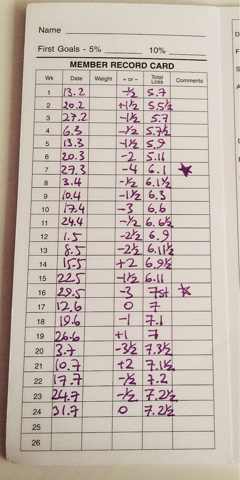 Name
First Goals - 5% 10%
MEMBER RECORD CARD
Wk Date Weight + or – Total Loss Comments
1 13.2 -½ 5.7
2 20.2 +1½ 5.5½
3 27.2 -1½ 5.7
4 6.3 -½ 5.7½
5 13.3 -1½ 5.9
6 20.3 -2 5.11
7 27.3 -4 6.1 ★
8 3.4 -½ 6.1½
9 10.4 -1½ 6.3
10 17.4 -3 6.6
11 24.4 -½ 6.6½
12 1.5 -2½ 6.9
13 8.5 -2½ 6.11½
14 15.5 +2 6.9½
15 22.5 -1½ 6.11
16 29.5 -3 7st ☆
17 12.6 0 7
18 19.6 -1 7.1
19 26.6 +1 7
20 3.7 -3½ 7.3½
21 10.7 +2 7.1½
22 17.7 -½ 7.2
23 24.7 -½ 7.2½
24 31.7 0 7.2½
25
26